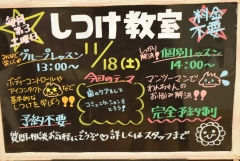 毎月第3土曜日
しつけ教室
料金不要
グループレッスン
13:00〜
11/18(土)
しっかり解決!
個別レッスン
14:00〜
ボディーコントロールや
アイコンタクトなど
基本的な
しつけを学ぼう!!
今回のテーマ
歯のケアをして
コミュニケーションを
とろう!
マンツーマンで
わんちゃんの
お悩み解決!
予約不要
完全予約制
質問・相談お気軽にどうぞ♡詳しくはスタッフまで